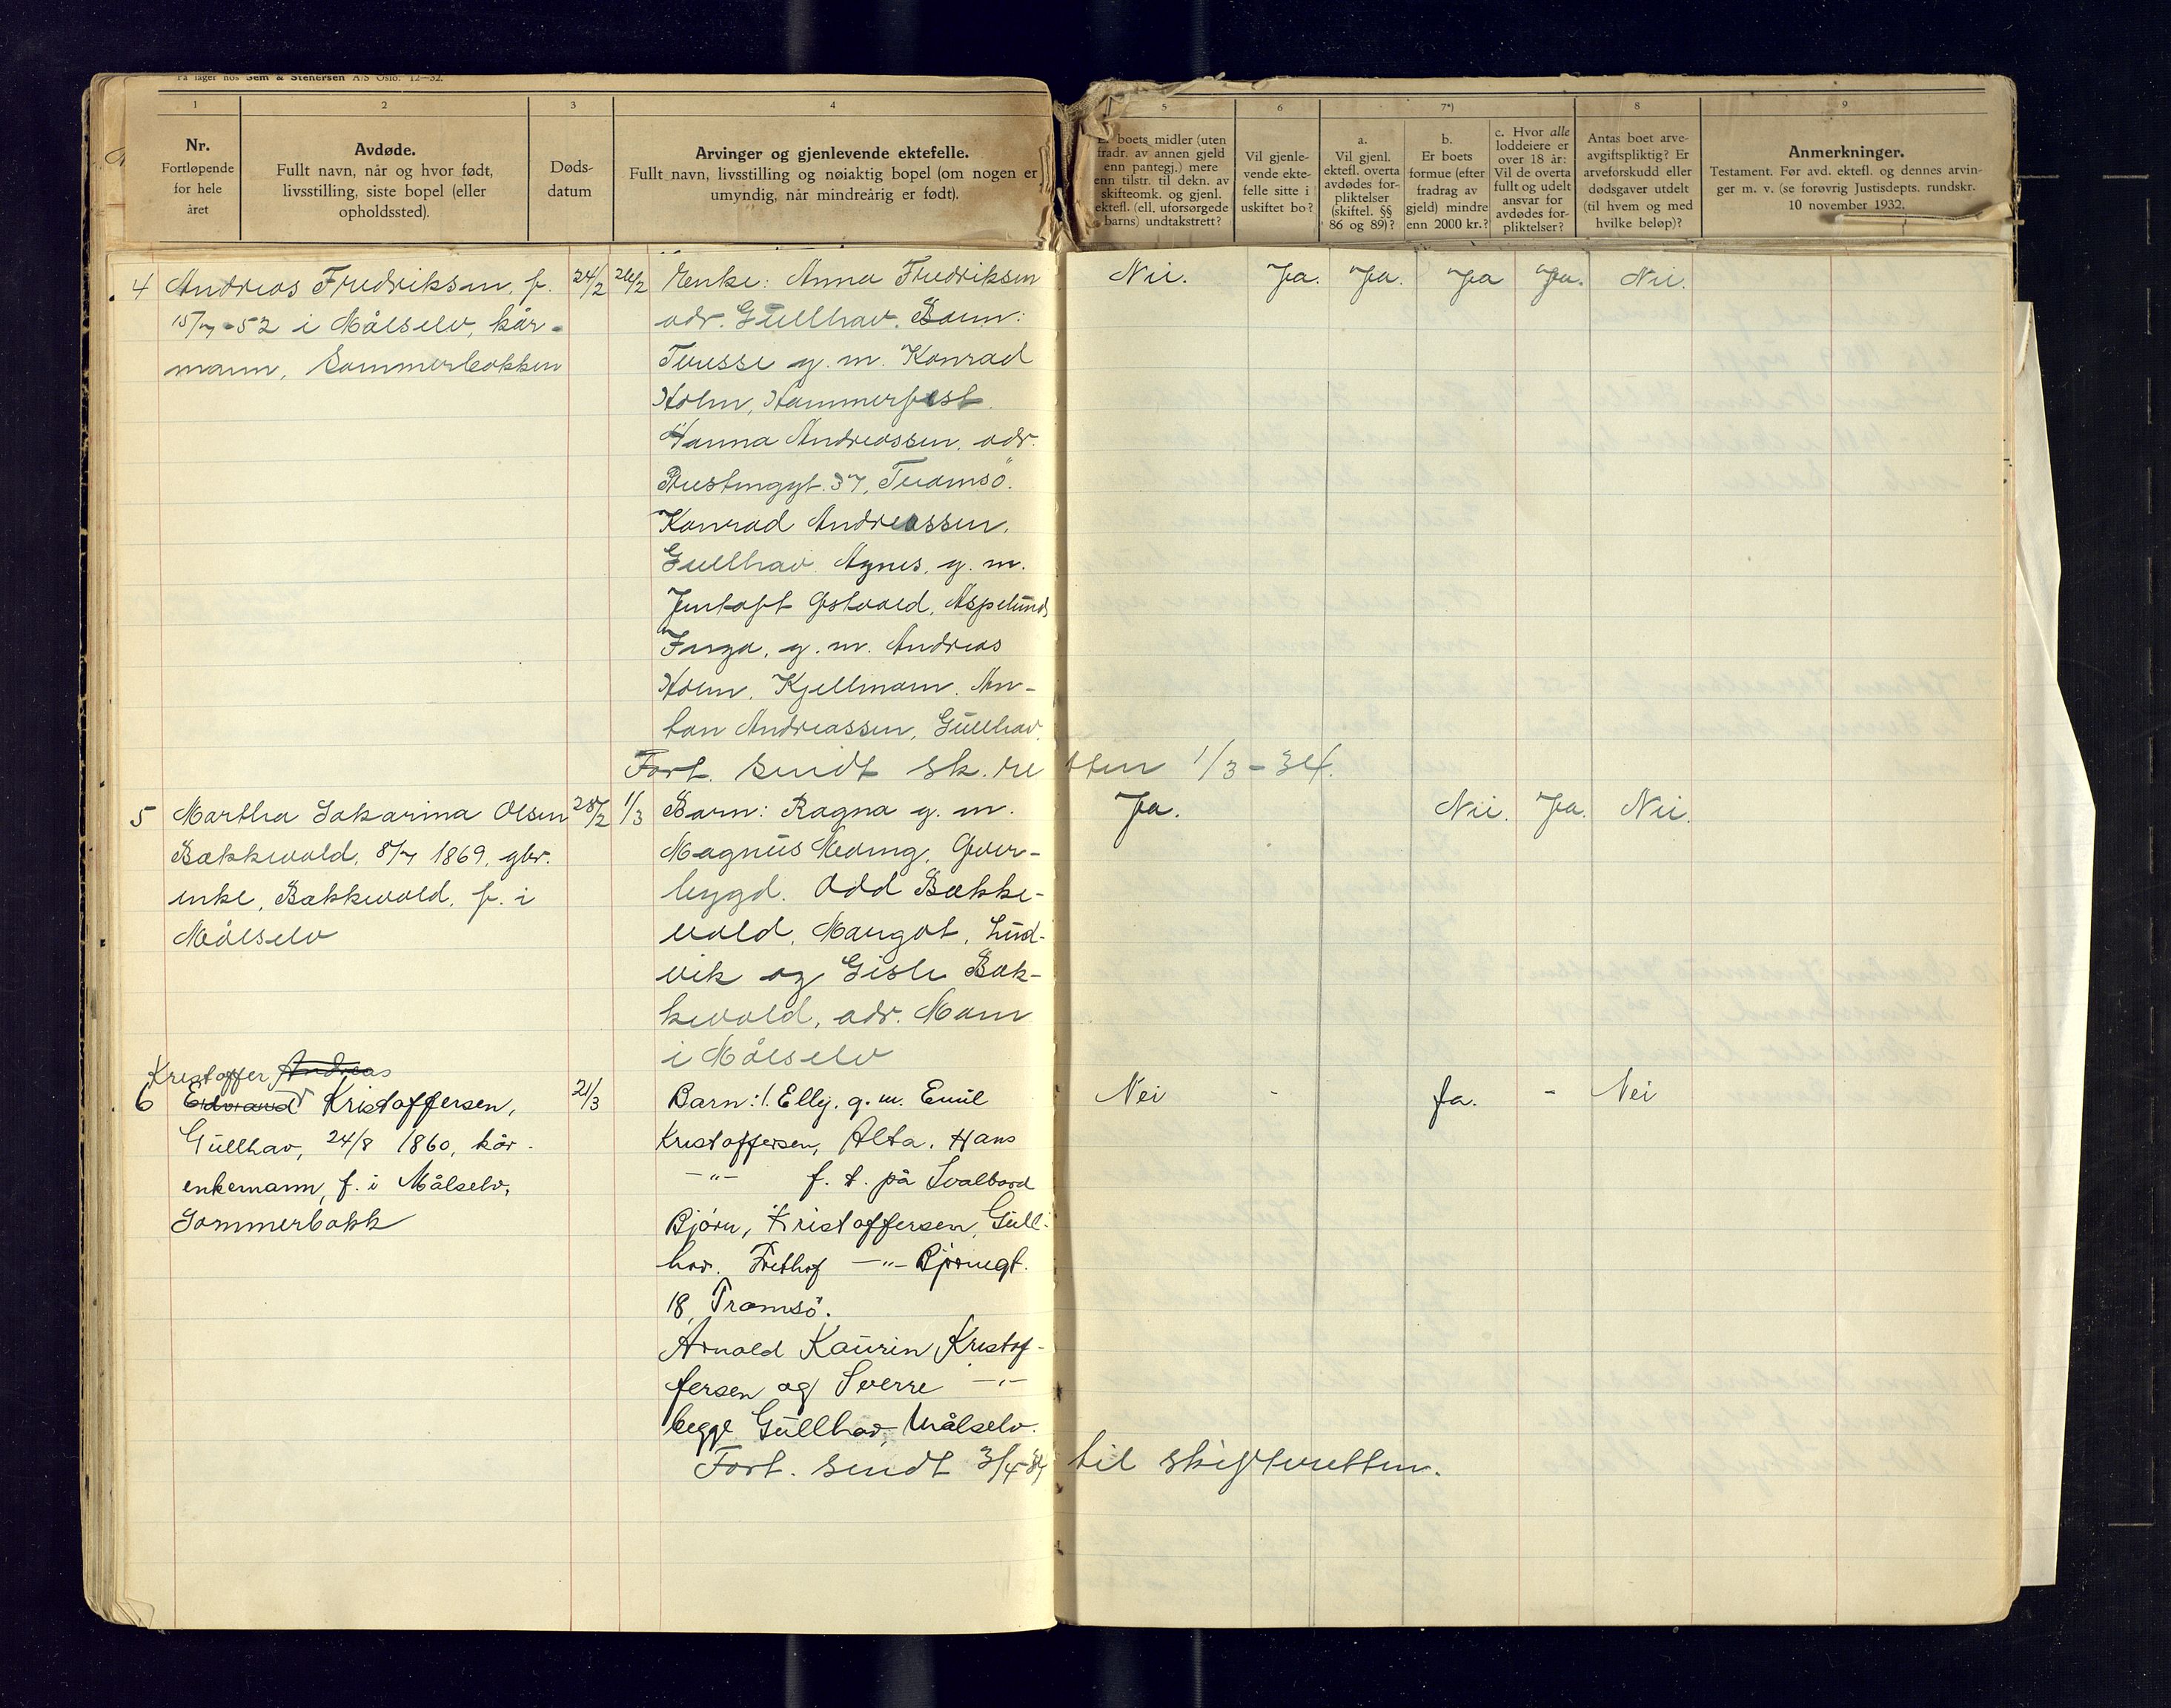 På lager hos Sem & Stenersen A/S Oslo. 12—32.
1
2
3
4
5
6
7*)
8
9
Nr.
Fortløpende
for hele
året
Avdøde.
Fullt navn, når og hvor født,
livsstilling, siste bopel (eller
opholdssted).
Døds-
datum
Arvinger og gjenlevende ektefelle.
Fullt navn, livsstilling og nøiaktig bopel (om nogen er
umyndig, når mindreårig er født).
boets midler (uten
fradr. av annen gjeld
enn pantegj.) mere
enn tilstr. til dekn. av
skifteomk. og gjenl.
ektefl. (ell. uforsørgede
barns) undtakstrett?
Vil gjenle-
vende ekte-
felle sitte i
uskiftet bo?
a.
Vil gjenl.
ektefl. overta
avdødes for-
pliktelser
(skiftel. §§
86 og 89)?
b.
Er boets
formue (efter
fradrag av
gjeld) mindre
enn 2000 kr.?
c. Hvor alle
loddeiere er
over 18 år:
Vil de overta
fullt og udelt
ansvar for
avdødes for-
pliktelser?
Antas boet arve-
avgiftspliktig? Er
arveforskudd eller
dødsgaver utdelt
(til hvem og med
hvilke beløp)?
Anmerkninger.
Testament. Før avd. ektefl. og dennes arvin-
ger m. v. (se forøvrig Justisdepts. rundskr.
10 november 1932.
4 Andreas Fredriksen, f. 24/2 26/2 Enke: Anna Fredriksen Nei. Ja. Ja. Ja Ja. Nei.
15/7-52 i Målselv, kår- adr. Gullhav. Barn:
mann, Sommerbakken
g. m. Konrad
Holm, Hammerfest.
Hanna Andreassen, adr.
37, Tromsö.
Konrad Andreassen,
Gullhav. Agnes, g. m.
Jentoft Aspelund,
Inga, g. m. Andreas
Holm, Kjellmann. An-
ton Andreassen, Gullhav.
Fort. sendt sk. retten 1/3-34.
5 Martha Sakarina Olsen 28/2 1/3 Barn: Ragna g. m. Ja. Nei. Ja. Nei.
Bækkevold, 8/7 1869, gbr. Magnus Över-
enke, Bækkevold, f. i bygd. Odd Bække-
Målselv vold, Margot, Lud-
vik og Gisle Bæk-
kevold, adr. Moen
i Målselv
Kristoffer Andreas
6 Edvard Kristoffersen, 21/3 Barn: 1. Elly, g. m. Emil Nei - Ja. - Nei
Gullhav, 24/8 1860, kår- Kristoffersen, Alta. Hans
enkemann, f. i Målselv, —"— f. t. på Svalbard
Sommerbakk Bjørn, Kristoffersen, Gull-
hav. Frithof —"— Bjørnegt.
18, Tromsö.
Arnold Kaurin Kristof-
fersen og Sverre —"—
begge Gullhav, Målselv.
Fort. sendt 3/4-34 til skifteretten.